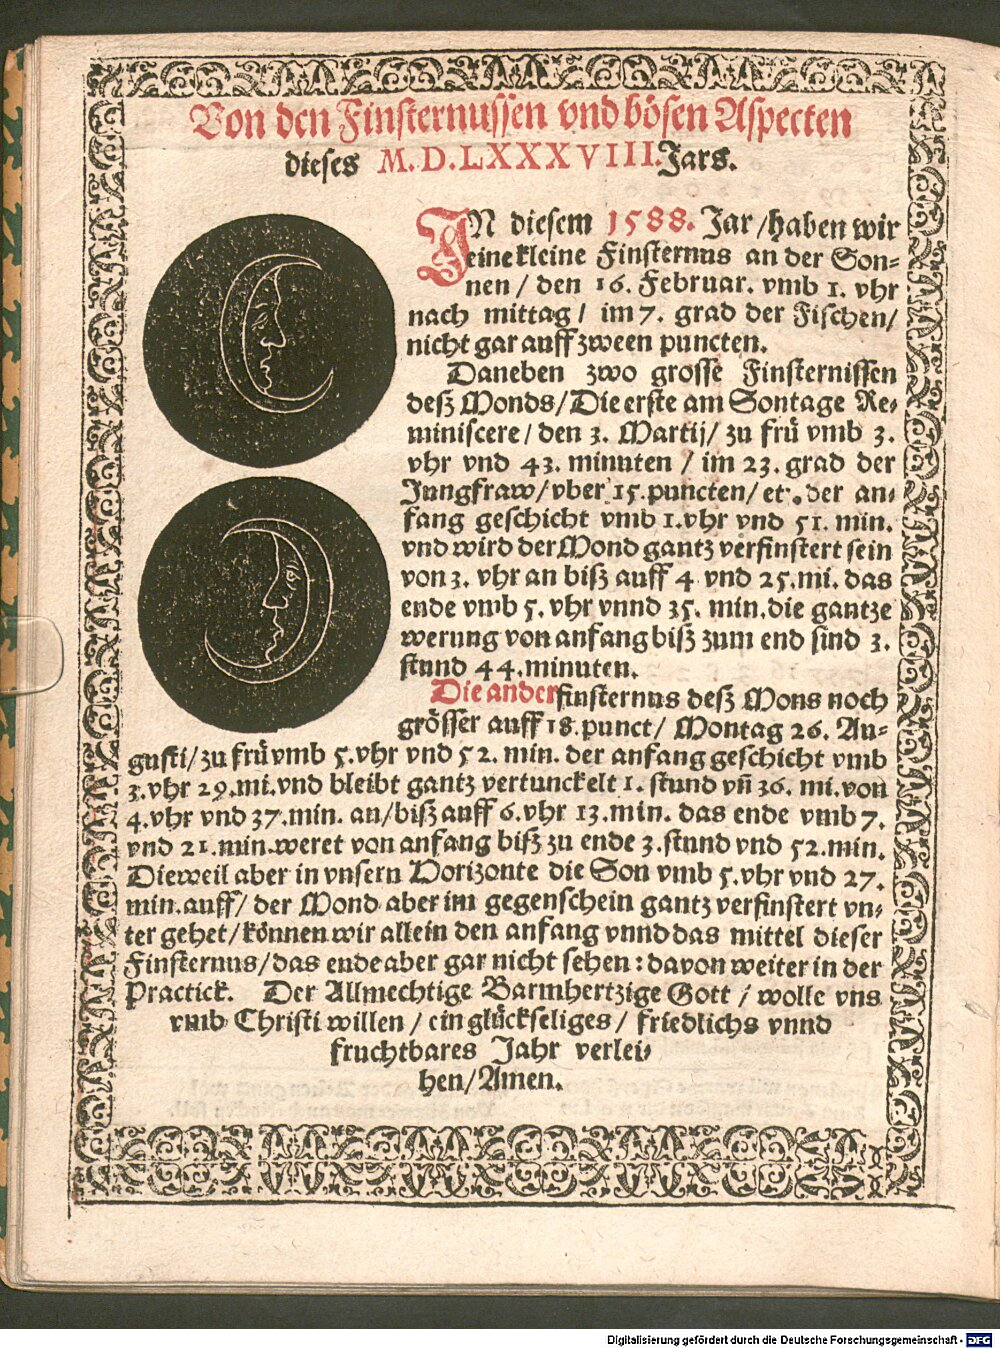 Von den Finsternussen vnd bösen Aspecten
dieses M.D.LXXXVIII. Jars.
IN diesem 1588. Jar / haben wir
eine kleine Finsternus an der Son⸗
nen / den 16. Februar. vmb 1. vhr
nach mittag / im 7. grad der Fischen /
nicht gar auff zween puncten.
Daneben zwo grosse Finsternissen
deß Monds / Die erste am Sontage Re⸗
miniscere / den 3. Martij / zu frü vmb 3.
vhr vnd 43. minuten / im 23. grad der
Jungfraw / vber 15. puncten / et. der an⸗
fang geschicht vmb 1. vhr vnd 51. min.
vnd wird der Mond gantz verfinstert sein
von 3. vhr an biß auff 4 vnd 25. mi. das
ende vmb 5. vhr vnnd 35. min. die gantze
werung von anfang biß zum end sind 3.
stund 44. minuten.
Die ander finsternus deß Mons noch
grösser auff 18. punct / Montag 26. Au⸗
gusti / zu frü vmb 5. vhr vnd 52. min. der anfang geschicht vmb
3. vhr 29. mi. vnd bleibt gantz vertunckelt 1. stund vñ 36. mi. von
4. vhr vnd 37. min. an / biß auff 6. vhr 13. min. das ende vmb 7.
vnd 21. min. weret von anfang biß zu ende 3. stund vnd 52. min.
Dieweil aber in vnsern Horizonte die Son vmb 5. vhr vnd 27.
min. auff / der Mond aber im gegenschein gantz verfinstert vn⸗
ter gehet / können wir allein den anfang vnnd das mittel dieser
Finsternus / das ende aber gar nicht sehen : davon weiter in der
Practick. Der Allmechtige Barmhertzige Gott / wolle vns
vmb Christi willen / ein glückseliges / friedlichs vnnd
fruchtbares Jahr verlei⸗
hen / Amen.
Digitalisierung gefördert durch die Deutsche Forschungsgemeinschaft - DFG